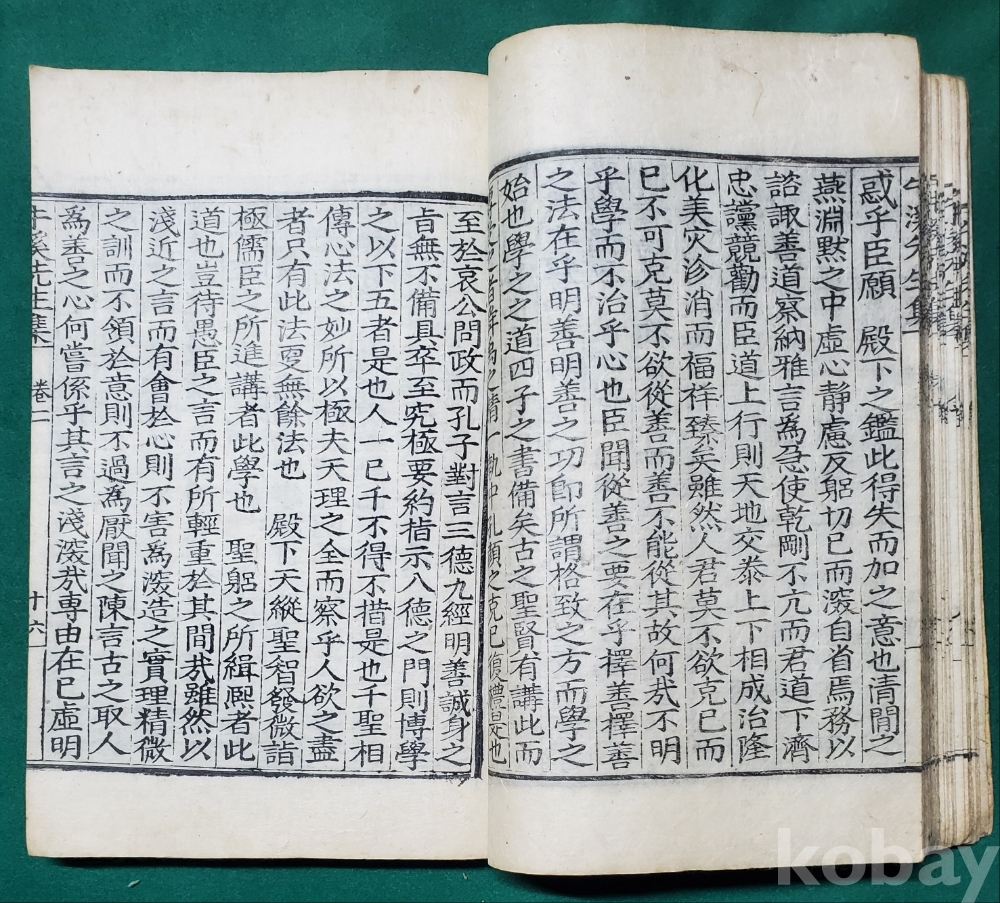 惑乎臣願　殿下之鑑此得失而加之意也清閒之
燕淵默之中虛心靜慮反躬切已而深自省焉務以
諮諏善道察納雅言為急使乾剛不亢而君道下濟
忠讜競勸而臣道上行則天地交泰上下相成治隆
化美灾沴消而福祥臻矣雖然人君莫不欲克已而
已不可克莫不欲從善而善不能從其故何哉不明
乎學而不治乎心也臣聞從善之要在乎擇善擇善
之法在乎明善明善之功卽所謂格致之方而學之
始也學之之道四子之書備矣古之聖賢有講此而
孔顔之克已復禮是也
至於哀公問政而孔子對言三德九經明善誠身之
旨無不備具卒至究極要約指示八德之門則博學
之以下五者是也人一已千不得不措是也千聖相
傳心法之妙所以極夫天理之全而察乎人欲之盡
者只有此法更無餘法也　殿下天縱聖智發微詣
極儒臣之所進講者此學也　聖躬之所緝熙者此
道也豈待愚臣之言而有所輕重於其間哉雖然以
淺近之言而有會於心則不害為深造之實理精微
之訓而不領於意則不過為厭聞之陳言古之取人
為善之心何嘗係乎其言之淺深哉專由在已虛明
牛溪先生集　卷二　十六
kobay